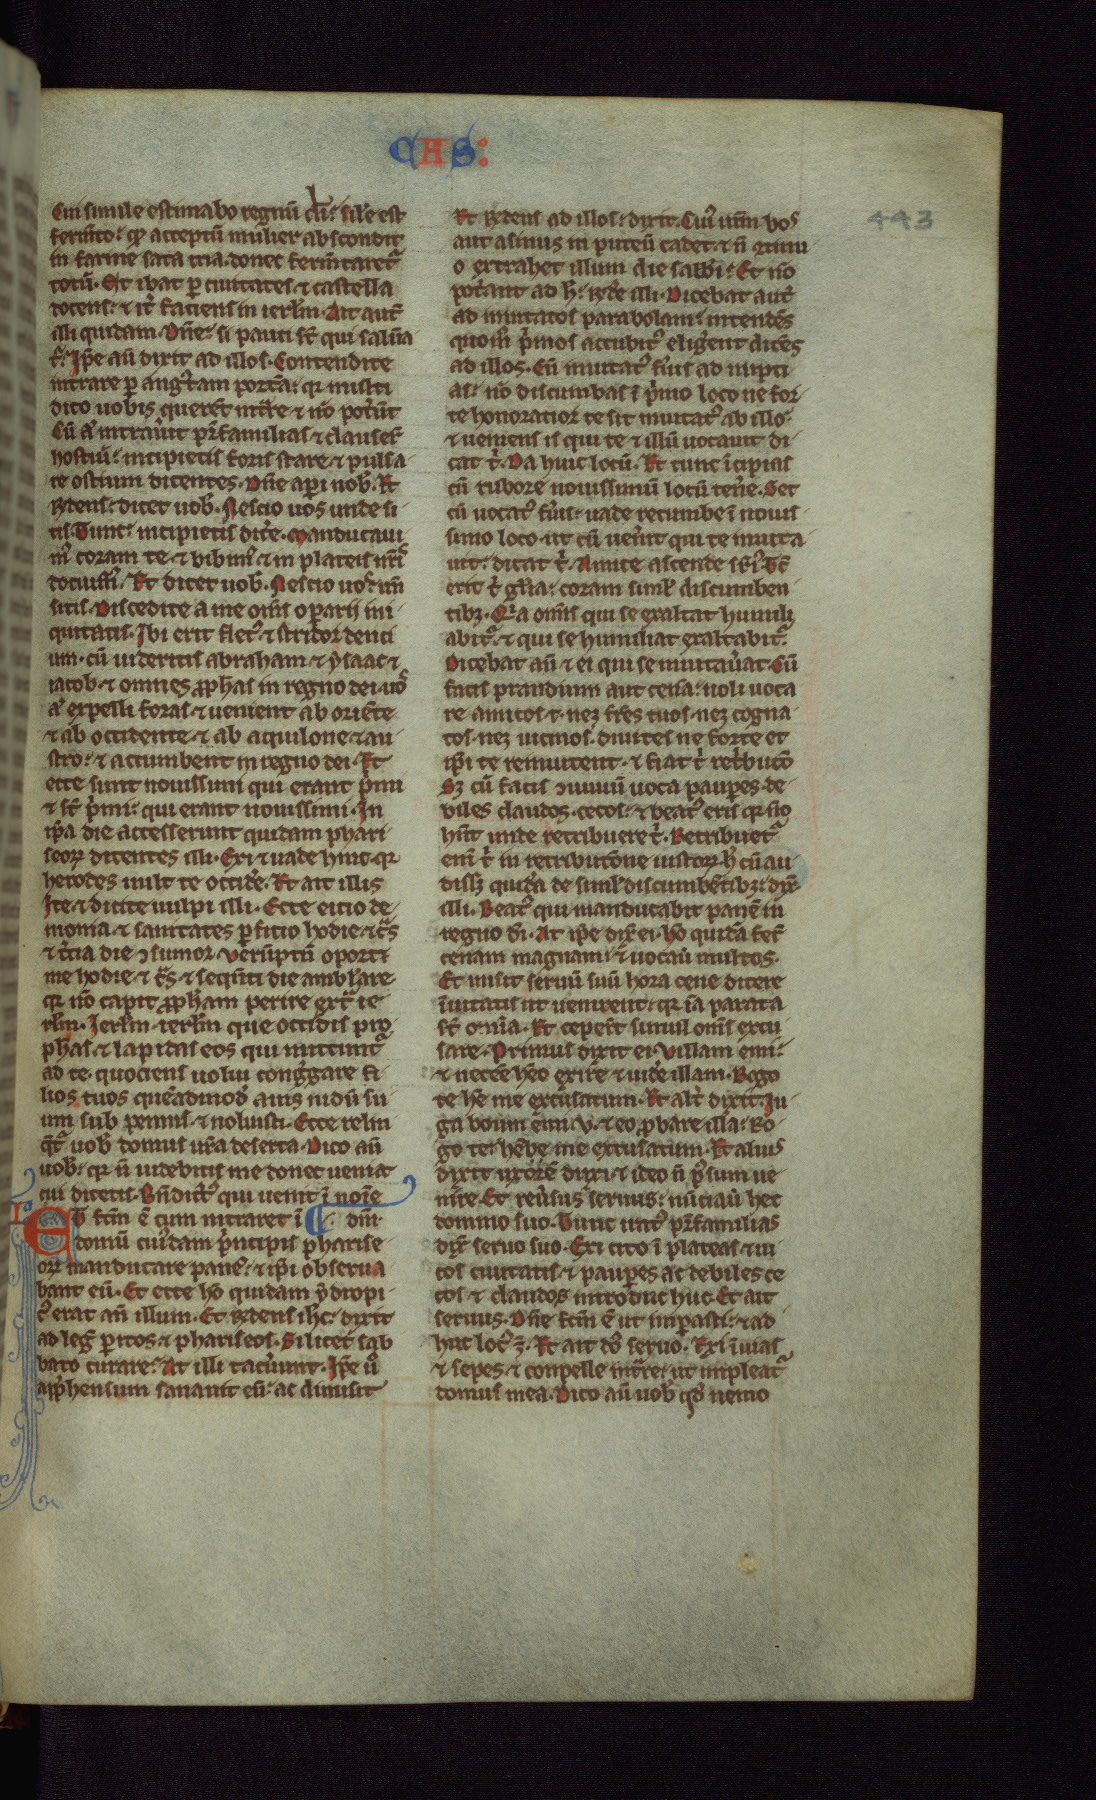 CAS:
443
Cui simile estimabo regnū dei: sil̄e est
ferm̄to: qḋ acceptū mulier abscondit
in farine sata tria. donecferm̄taretᷣ
totū. Et ibat ꝑ ciuitates ⁊ castella
docens: ⁊ it̓ faciens in ierl̄m. Ait autē
illi quidam. Dn̄e: si pauci sn̄t qui salūa
t̓. Ip̄e aū dixit ad illos. Contendite
intrare ꝑ angͣstam portā: qr multi
dico uobis querēt intͣre ⁊ nō pot̓ūt
Cū aͧ intͣuit pr̄familias ⁊ clauserͭ
hostiū: incipietis foris stare ⁊ pulsa
re ostium dicentes. Dn̄e aꝑi nob̄. Et
rn̄dens: dicet uob̄. Nescio uos unde si
tis. Tunc: incipietis dic̓e. Manducaui
mꝰ coram te ⁊ bibimꝰ ⁊ in plateis nr̄is
docuisti. Et dicet uob̄. Nescio uos: un̄
sitis. Discedite a me om̄s oparii ini
quitatis. Ibi erit fletꝰ ⁊ stridor denti
um. cū uideritis abraham ⁊ ysaac ⁊
iacob ⁊ omnes ꝓphas in regno dei. uos
aͧ expelli foras ⁊ uenient ab oriēte
⁊ ab occidente ⁊ ab aquilone ⁊ au
stro: ⁊ accumbent in regno dei. Et
ecce sunt nouissimi qui erant p̓mi
⁊ sn̄t p̓mi: qui erant nouissimi. In
ip̄a die accesserunt quidam phari
seoꝝ dicentes illi. Exi ⁊ uade hinc. qr
herodes uult te occid̓e. Et ait illis
Ite ⁊ dicite uulpi illi. Ecce eicio de
monia ⁊ sanitates ꝑficio hodie ⁊ cͣs
⁊ t̓cia die ↄsumor. Verūptn̄ oportꝫ
me hodie ⁊ cͣs ⁊ seqūti die ambl̄are
qr nō capit ꝓpham perire extͣ ie
rl̄m. Ierl̄m ierl̄m que occidis pro
phas ⁊ lapidas eos qui mittuntᷣ
ad te. quociens uolui cong̓gare fi
lios tuos quēadmod̄ auis nidū su
um sub pennis ⁊ noluisti. Ecce relin
q̄tᷣ uob̄ domus ur̄a deserta. Dico aū
uob̄: qr n̄ uidebitis me donec ueniat
cū dicetis. Bn̄dictꝰ qui uenit ī noīe
dn̄i
Et fcm̄ ē cum intraret ī
domū cuiꝰdam p̓ncipis pharise
oꝝ manducare panē: ⁊ ip̄i obserua
bant eū. Et ecce hō quidam ydropi
cꝰ erat an̄ illum. Et rn̄dens ih̄c: dixit
ad leg̓ peritos ⁊ phariseos. Si licet sab
bato curare: At illi tacuerunt. Ip̄e ū
app̄hensum sanauit eū: ac dimisit
Et rn̄dens ad illos: dixit. Cuiꝰ ur̄m uos
aut asinus in puteū cadet ⁊ n̄ ↄtinu
o extrahet illum die sabbi: Et nō
pot̓ant ad h̄: rn̄de illi. Dicebat autē
ad inuitatos parabolam: intendēs
quom̄ p̓mos accubitꝰ elig̓ent dicēs
ad illos. Cū inuitatꝰ fūis ad nupti
as: nō discumbas ī p̓mo loco ne for
te honoratior te sit inuitatꝰ ab illo:
⁊ ueniens is qui te ⁊ illū uocauit di
cat t̓. Da huic locū. Et tunc īcipias
cū rubore nouissimū locū ten̓e. Set
cū uocatꝰ fūis: uade recumbe ī nouis
simo loco. ut cū uen̓it qui te inuita
uit: dicat t̓. Amice ascende sup̓. Tc̄
erit t̓ glīa: coram siml̄ discumben
tibꝫ. Qͥa om̄is qui se exaltat humili
abitᷣ ⁊ qui se humiliat exaltabitᷣ.
Dicebat aū ⁊ ei qui se inuitau̓at. Cū
facis prandium aut cenā: noli uoca
re amicos t. neqꝫ fr̄es tuos. neqꝫ cogna
tos. neqꝫ uicinos. diuites ne forte et
ip̄i te reinuitent. ⁊ fiat t̓ ret̓bucō
Sꝫ cū facis ↄuiuiū uoca paupes. de
biles claudos. cecos: ⁊ beatꝰ eris qr nō
hn̄t unde retribuere t̓. Retribuetᷣ
eni t̓ in retribucōne iustoꝝ. h̄ cū au
dissꝫ quidā de siml̄ discumbētibꝫ: dix̄
illi. Beatꝰ qui manducabit panē in
regno dī. At ip̄e dix̄ ei. Hō quidā fec̄
cenam magnam: ⁊ uocau̓ multos.
Et misit seruū suū hora cene dicere
īuitatis ut uenirent: qr iā parata
sn̄t omīa. Et ceperͭ simul om̄s excu
sare. Primus dixit ei. Villam emi:
⁊ necē hēo exire ⁊ uid̓e illam. Rogo
te hē me excusatum. Et alt̓ dixit. Iu
ga boum emi. v. ⁊ eo ꝓbare illa: Ro
go te: hēbe me excusatum. Et alius
dixit uxorē duxi. ⁊ ideo n̄ p̓sum ue
nire. Et reu̓sus seruus: nūciau̓ hec
domino suo. Tunc iratꝰ pr̄familias
dix̄ seruo suo. Exi cito ī plateas ⁊ ui
cos ciuitatis. ⁊ paupes ac debiles ce
cos ⁊ claudos introduc huc. Et ait
seruus. Dn̄e fcm̄ ē ut impasti: ⁊ ad
huc locꝰ ē. Et ait dn̄s seruo. Exi ī uias
⁊ sepes. ⁊ conpelle intͣre: ut impleatᷣ
domus mea. Dico aū uob̄ qḋ nemo